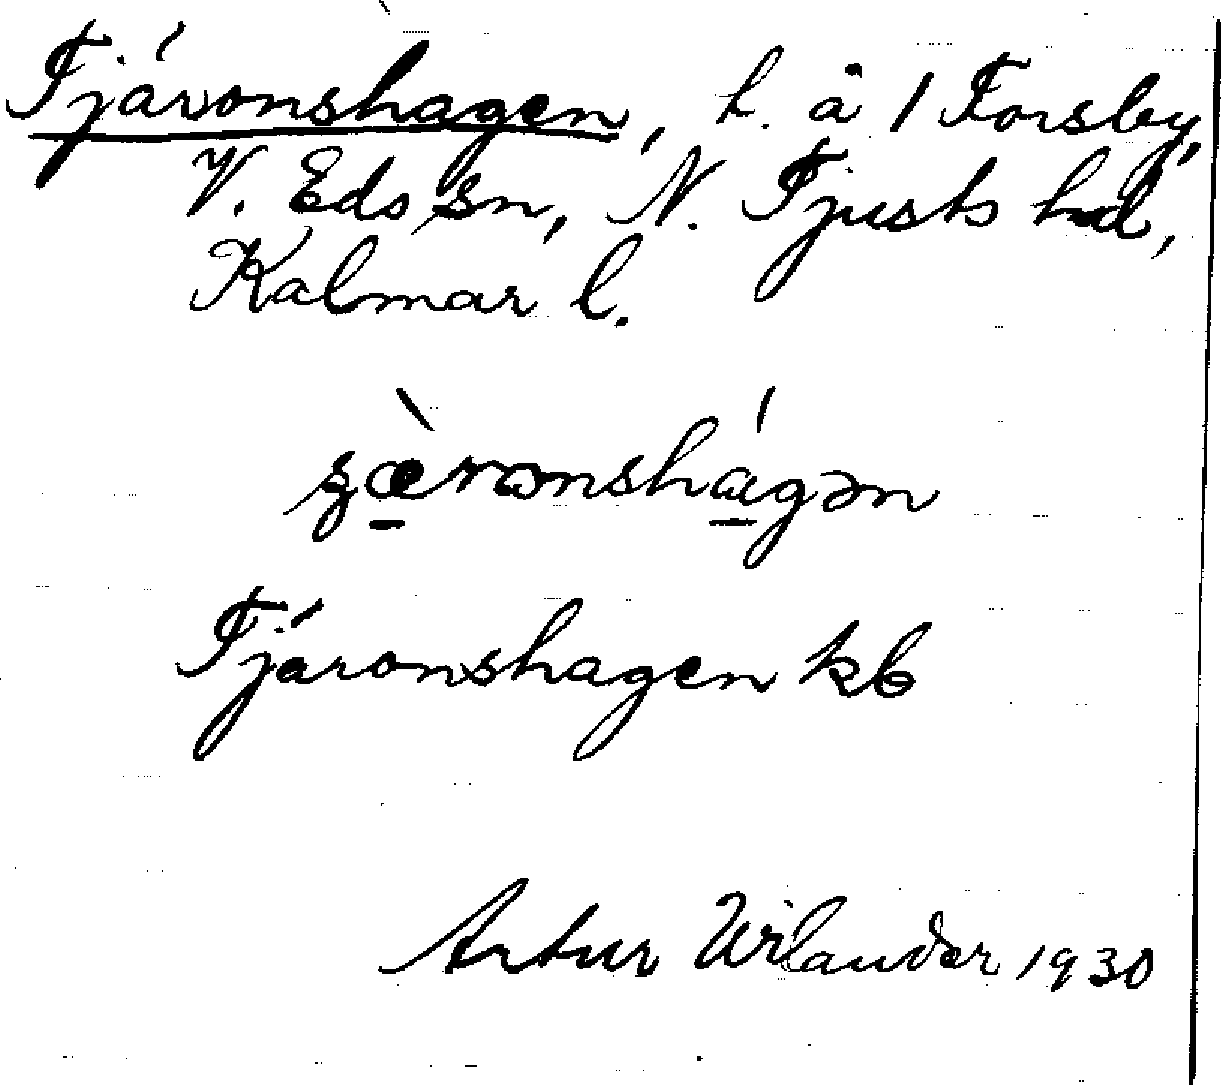 Tjäronshagen, l. å 1 Forsby,
V. Eds sn, N. Tjusts hd,
Kalmar l.
Tjäronshagen kb
Artur Wilander 1930